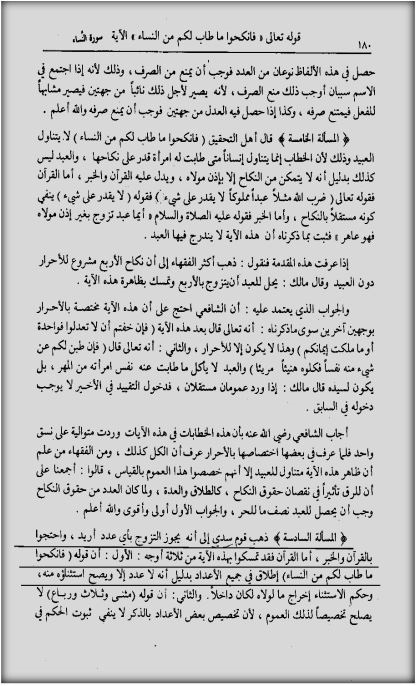 ١٨٠
قوله تعالى « فانكحوا ما طاب لكم من النساء » الآية
سورة النساء
حصل في هذه الألفاظ نوعان من العدد فوجب أن يمنع من الصرف ، وذلك لأنه إذا اجتمع في
الاسم سببان أوجب ذلك منع الصرف ، لأنه يصير لأجل ذلك نائباً من جهتين فيصير مشابهاً
للفعل فيمتنع صرفه ، وكذا إذا حصل فيه العدل من جهتين فوجب أن يمنع صرفه والله أعلم .
﴿ المسألة الخامسة ﴾ قال أهل التحقيق ( فانكحوا ما طاب لكم من النساء ) لا يتناول
العبيد وذلك لأن الخطاب إنما يتناول إنساناً متى طابت له امرأة قدر على نكاحها ، والعبد ليس
كذلك بدليل أنه لا يتمكن من النكاح إلا بإذن مولاه ، ويدل عليه القرآن والخبر ، أما القرآن
فقوله تعالى ( ضرب الله مثلاً عبداً مملوكاً لا يقدر على شيء ) فقوله ( لا يقدر على شيء ) ينفي
كونه مستقلاً بالنكاح ، وأما الخبر فقوله عليه الصلاة والسلام « أيما عبد تزوج بغير إذن مولاه
فهو عاهر » فثبت بما ذكرناه أن هذه الآية لا يندرج فيها العبد .
إذا عرفت هذه المقدمة فنقول : ذهب أكثر الفقهاء إلى أن نكاح الأربع مشروع للأحرار
دون العبيد وقال مالك : يحل للعبد أن يتزوج بالأربع وتمسك بظاهرة هذه الآية .
والجواب الذي يعتمد عليه : أن الشافعي احتج على أن هذه الآية مختصة بالأحرار
بوجهين آخرين سوى ما ذكرناه : أنه تعالى قال بعد هذه الآية ( فإن خفتم أن لا تعدلوا فواحدة
أو ما ملكت إيمانكم ) وهذا لا يكون إلا للأحرار ، والثاني : أنه تعالى قال ( فإن طبن لكم عن
شيء منه نفساً فكلوه هنيئاً مريئا ) والعبد لا يأكل ما طابت عنه نفس امرأته من المهر ، بل
يكون لسيده قال مالك : إذا ورد عمومان مستقلان ، فدخول التقييد في الأخير لا يوجب
دخوله في السابق .
أجاب الشافعي رضي الله عنه بأن هذه الخطابات في هذه الآيات وردت متوالية على نسق
واحد فلما عرف في بعضها اختصاصها بالأحرار عرف أن الكل كذلك ، ومن الفقهاء من علم
أن ظاهر هذه الآية متناول للعبيد إلا أنهم خصصوا هذا العموم بالقياس ، قالوا : أجمعنا على
أن للرق تأثيراً في نقصان حقوق النكاح ، كالطلاق والعدة ، ولما كان العدد من حقوق النكاح
وجب أن يحصل للعبد نصف ما للحر ، والجواب الأول أولى وأقوى والله أعلم .
﴿ المسألة السادسة ﴾ ذهب قوم سدى إلى أنه يجوز التزوج بأي عدد أريد ، واحتجوا
بالقرآن والخبر ، أما القرآن فقد تمسكوا بهذه الآية من ثلاثة أوجه : الأول : أن قوله ( فانكحوا
ما طاب لكم من النساء ) إطلاق في جميع الأعداد بدليل أنه لا عدد إلا ويصح استثناؤه منه ،
وحكم الاستثناء إخراج ما لولاه لكان داخلاً . والثاني : أن قوله ( مثنى وثلاث ورباع ) لا
يصلح تخصيصاً لذلك العموم ، لأن تخصيص بعض الأعداد بالذكر لا ينفي ثبوت الحكم في